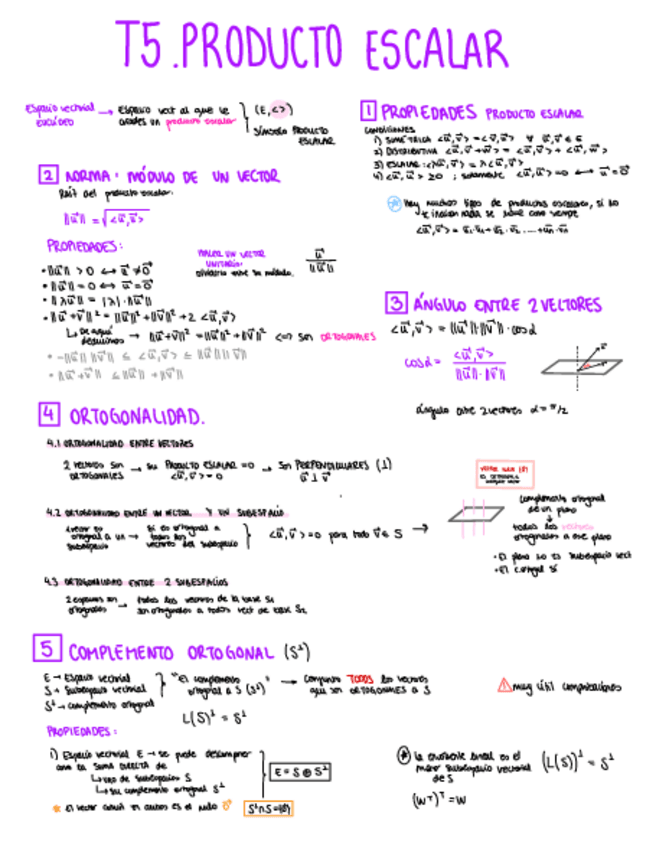 T5. PRODUCTO ESCALAR
Espacio vectorial → Espacio vect al que le
EUCLÍDEO añades un producto escalar
(E, <>)
SÍMBOLO PRODUCTO
ESCALAR
1 PROPIEDADES PRODUCTO ESCALAR
CONDICIONES
1) SIMÉTRICA <u⃗,v⃗> = <v⃗,u⃗> ∀ u⃗,v⃗ ∈ E
2) DISTRIBUTIVA <u⃗, v⃗+w⃗> = <u⃗,v⃗> + <u⃗,w⃗>
3) ESCALAR: <λu⃗,v⃗> = λ<u⃗,v⃗>
4) <u⃗,u⃗> ≥0 ; solamente <u⃗,u⃗> =0 ⟷ u⃗=0⃗
Hay muchos tipos de productos escalares, si no
te indican nada se hace como siempre
<u⃗,v⃗> = u₁·v₁+u₂·v₂.....+un·vn
2 NORMA: MÓDULO DE UN VECTOR
Raíz del producto escalar.
||u⃗|| = √<u⃗,u⃗>
PROPIEDADES:
• ||u⃗|| > 0 ⟷ u⃗ ≠ 0⃗
• ||u⃗|| = 0 ⟷ u⃗ = 0⃗
• ||λu⃗|| = |λ|·||u⃗||
• ||u⃗+v⃗||² = ||u⃗||² + ||v⃗||² + 2 <u⃗,v⃗>
↳ De aquí deducimos → ||u⃗+v⃗||² = ||u⃗||² + ||v⃗||² <=> son ORTOGONALES
• -||u⃗|| ||v⃗|| ≤ <u⃗,v⃗> ≤ ||u⃗|| ||v⃗||
• ||u⃗+v⃗|| ≤ ||u⃗|| + ||v⃗||
HACER UN VECTOR
UNITARIO:
dividirlo entre su módulo.
u⃗ / ||u⃗||
3 ÁNGULO ENTRE 2 VECTORES
<u⃗,v⃗> = ||u⃗||·||v⃗||·cosα
cosα = <u⃗,v⃗> / ||u⃗||·||v⃗||
ángulo entre 2 vectores α = π/2
4 ORTOGONALIDAD.
4.1 ORTOGONALIDAD ENTRE VECTORES
2 vectores son → su PRODUCTO ESCALAR =0 → son PERPENDICULARES (⊥)
ORTOGONALES <u⃗,v⃗> = 0 u⃗ ⊥ v⃗
4.2 ORTOGONALIDAD ENTRE UN VECTOR Y UN SUBESPACIO
1 vector es ortogonal a un subespacio → si es ortogonal a todos los vectores del subespacio
<u⃗,v⃗> =0 para todo v⃗ ∈ S →
complemento ortogonal
de un plano
todos los vectores
ortogonales a ese plano
• El plano no es subespacio vect
• El ortogal sí
4.3 ORTOGONALIDAD ENTRE 2 SUBESPACIOS
2 espacios son → todos los vectores de la base S₁
ortogonales son ortogonales a todos vect de base S₂
5 COMPLEMENTO ORTOGONAL (S⊥)
E → Espacio vectorial
S → Subespacio vectorial
S⊥ → complemento ortogonal
"El complemento
ortogonal a S (S⊥)" → conjunto TODOS los vectores
que son ORTOGONALES a S
L(S)⊥ = S⊥
muy útil comprobaciones
PROPIEDADES:
1) Espacio vectorial E → se puede descomponer
como la SUMA DIRECTA de
↳ uno de subespacios S
↳ su complemento ortogonal S⊥
E = S ⊕ S⊥
* El vector común en ambos es el nulo 0⃗
S⊥∩S={0⃗}
* la envolvente lineal es el
menor subespacio vectorial
de S
(L(S))⊥ = S⊥
(W⊤)⊤ = W